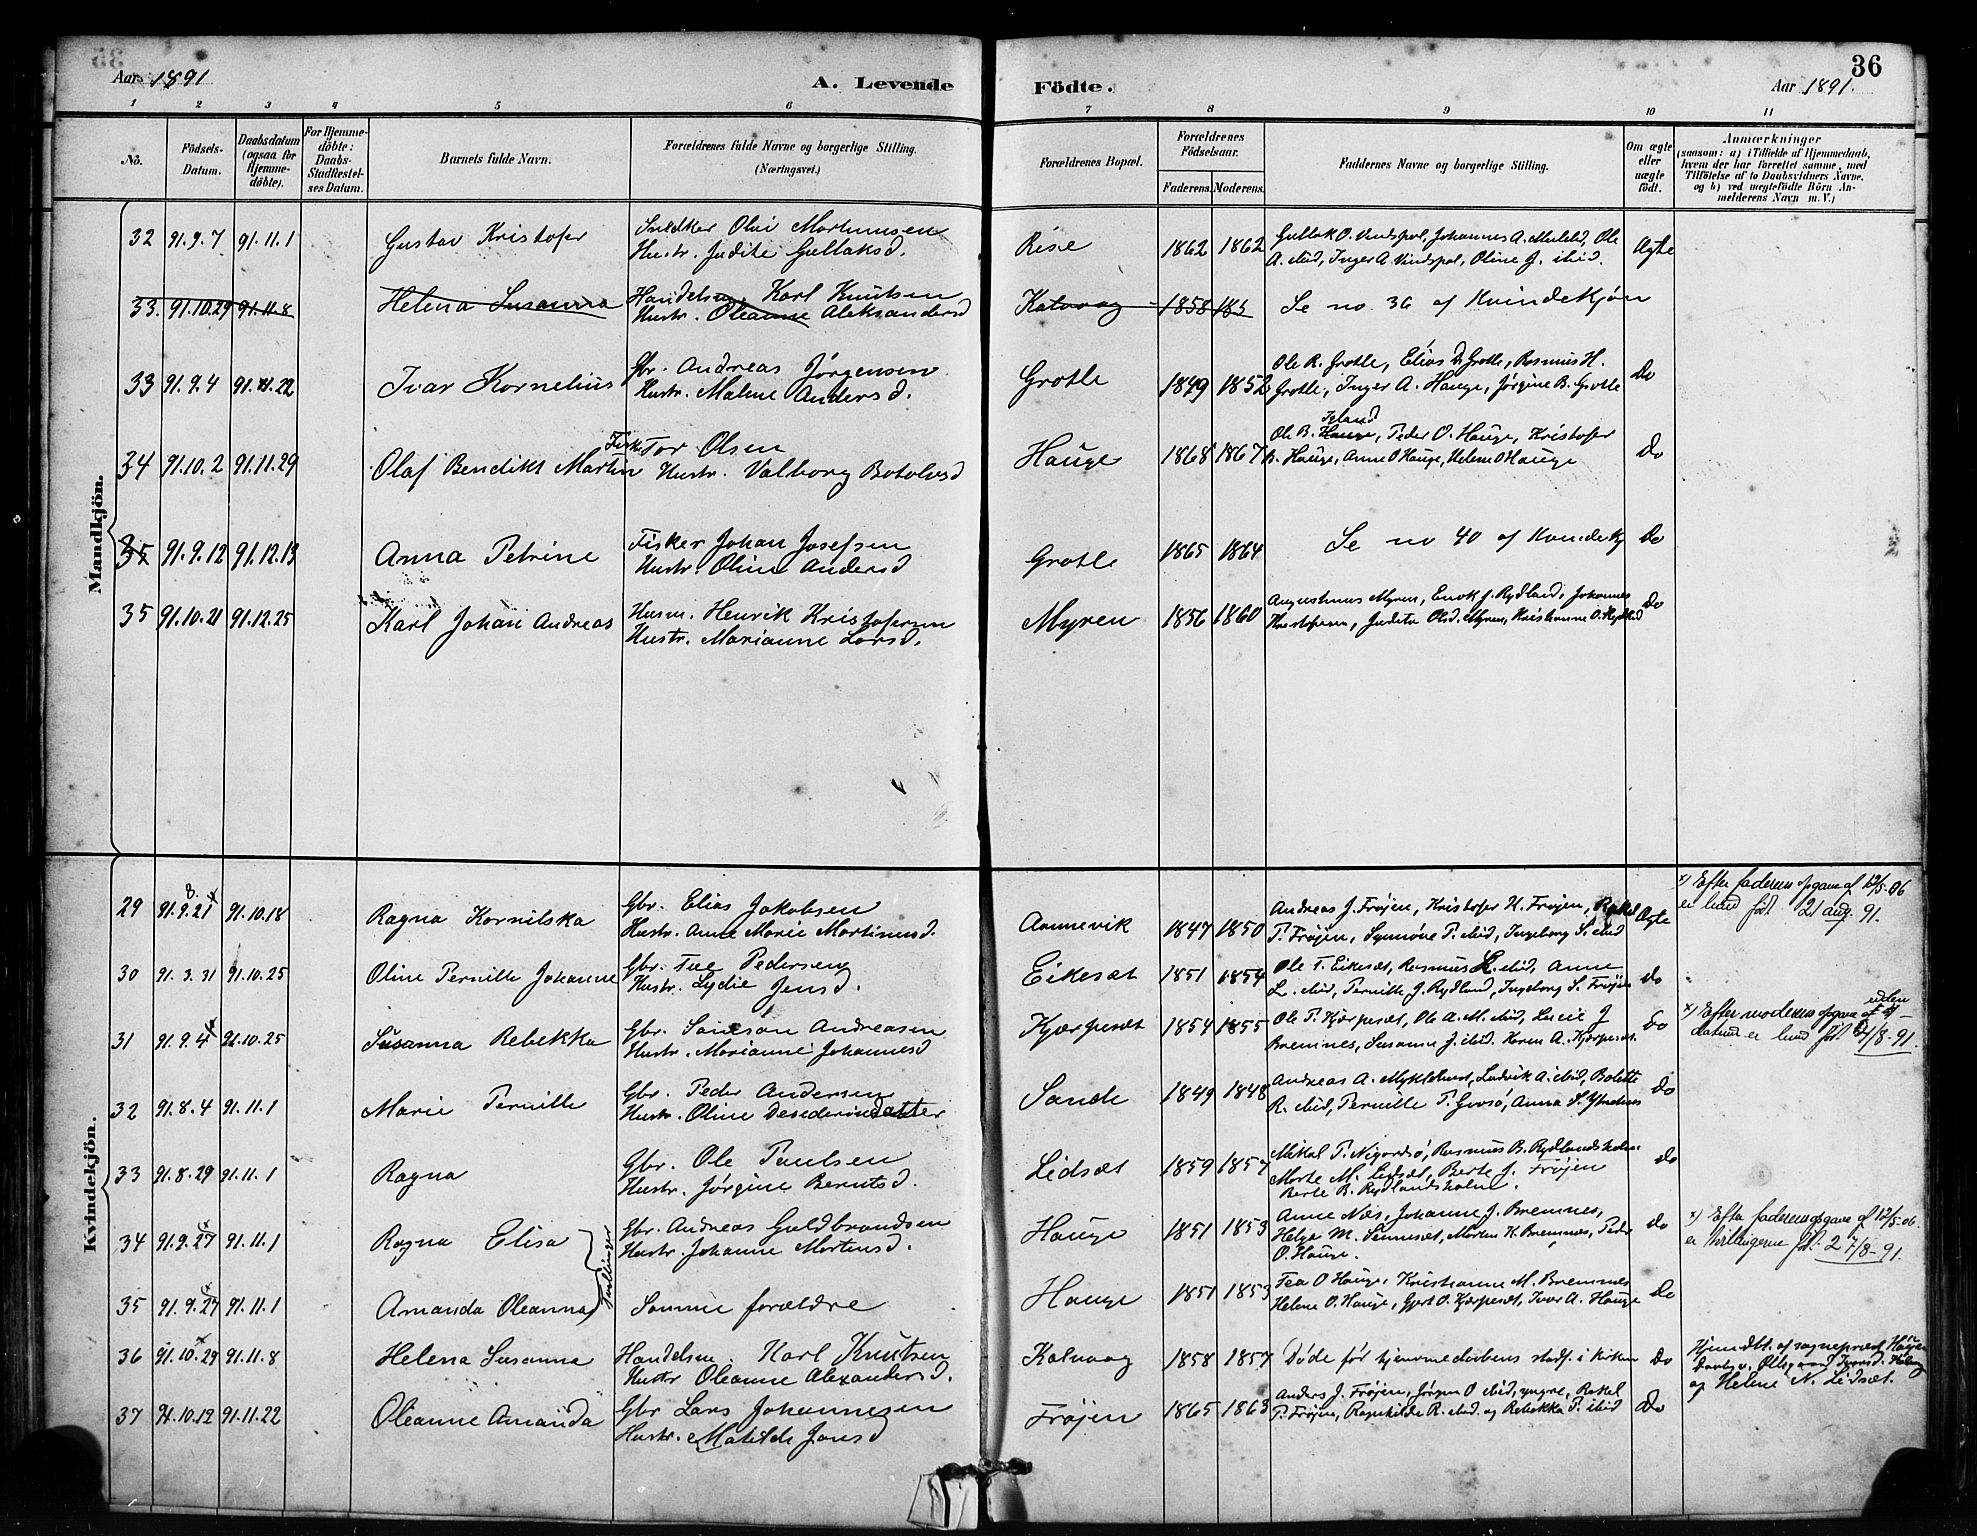 36
Aar 1891
A. Levende
Födte.
Aar 1891.
1 2 3 4 5 6 7 8 9 10 11
No.
Födsels-
Datum.
Daabsdatum
(ogsaa for
Hjemme-
döbte).
For Hjemme-
döbte:
Daabs-
Stadfestel-
ses Datum.
Barnets fulde Navn.
Forældrenes fulde Navne og borgerlige Stilling.
(Næringsvei.)
Forældrenes Bopæl.
Forældrenes
Födselsaar.
Faderens. Moderens.
Faddernes Navne og borgerlige Stilling.
Om ægte
eller
uægte
født.
Anmærkninger
(saasom: a) i Tilfælde af Hjemmedaab,
hvem der har forrettet samme, med
Tilföielse af to Daabsvidners Navne,
og b) ved uegtefödte Börn An-
melderens Navn m. V.)
Mandkjön.
32 91.9.7 91.11.1 Gustav Kristofer
Olai Martinusen
Hustr. Judite Gullaksd.
Rise 1862 1862
Gullak O. Vindspol, Johannes A. Ole
A. ibid, Inger A. Vindspol, Oline J. ibid.
Ægte
33. 91.10.29 91.11.8 Helena Susanna
Handelsm. Karl Knutsen
Hustr. Oleanne Aleksandersd
Kalvaag 1858 185
Se no. 36 af Kvindekjøn
33 91.9.4 91.11.22 Ivar Kornelius
Gbr. Andreas Jørgensen
Hustr. Malene Andersd.
Grotle 1849 1852
Ole R. Grotle, Elias Grotle, Rasmus H.
Grotle, Inger A. Hauge, Jørgine B. Grotle
Do
34 91.10.2 91.11.29 Olaf Bendikt Martin
Fisk. Tor Olsen
Hustr. Valborg Botolvsd
Hauge 1868 1867
Igland
Ole B. Hauge, Peder O. Hauge, Kristofer
B. Hauge, Anne O Hauge, Helene O Hauge
Do
35 91.9.12 91.12.13 Anna Petrine
Fisker Johan Josefsen
Hustr. Oline Andersd
Grotle 1865 1864
Se no 40 af Kvindekj
Do
35 91.10.21 91.12.25 Karl Johan Andreas
Husm. Henrik Kristofersen
Hustr. Marianne Larsd.
Myren 1856 1860
Augustinus Myren, Enok J. Rydland, Johannes
Kristofersen, Judite Olsd. Myren, Kristianne O. Rydland
Do
Kvindekjön.
29 91.9.21 8. x 91.10.18 Ragna Kornilska
Gbr. Elias Jakobsen
Hustr. Anne Marie Martinusd.
Annevik 1847 1850
Andreas J. Frøjen, Kristofer H. Frøjen, Rakel
P. Frøjen, Synnøve P. ibid, Ingeborg S. ibid
Ægte
x) Efter faderens opgave af 12/5-06
er hund født 21 aug. 91.
30 91.3.31 91.10.25 Oline Pernille Johanne
Gbr. Tue Pedersen
Hustr. Lydie Jensd.
Eikesæt 1851 1854
Ole T. Eikesæt, Rasmus L. ibid, Anne
L. ibid, Pernille J. Rydland, Ingeborg S. Frøjen
Do
31 91.9.4 x 91.10.25 Susanna Rebekka
Gbr. Samson Andreasen
Hustr. Marianne Johannesd
Kjærpesæt 1854 1855
Ole T. Kjærpesæt, Ole A. M. ibid, Lucie J
Bremnes, Susanne J. ibid. Karen A. Kjærpesæt.
Do
x) Efter moderens opgave uden
datum er hund født 4/8-91
32 91.8.4 91.11.1 Marie Pernille
Gbr. Peder Andersen
Hustr. Oline Desideriusdatter
Sande 1849 1848
Andreas A. Myklebust, Ludvik A. ibid, Bolette
R. ibid, Pernille P. Anna S.
Do
33 91.8.29 91.11.1 Ragna
Gbr. Ole Paulsen
Hustr. Jørgine Berntsd.
Lidsæt 1859 1857
Mikal P. Nigardsö, Rasmus B. Rydlandsholm
Marte M. Lidsæt, Berte J. Frøjen
Berte B. Rydlandsholm.
Do
34 91.9.27 x 91.11.1 Ragna Elisa
Tvillinger
Gbr. Andreas Guldbrandsen
Hustr. Johanne Mortensd.
Hauge 1851 1853
Anne Næs, Johanne J. Bremnes,
Helga M. Sennesæt, Morten K. Bremnes, Peder
O. Hauge.
Do
x) Efter faderens opgave af 12/5-06.
er tvillingerne født 27/8-91.
35 91.9.27 x 91.11.1 Amanda Oleanna
Samme forældre
Hauge 1851 1853
Tea O Hauge, Kristianne M. Bremnes
Helene O. Hauge, Gjert O. Kjærpesæt, Ivar A. Hauge
Do
36 91.10.29 x 91.11.8 Helena Susanna
Handelsm. Karl Knutsen
Hustr Oleanne Alexandersd.
Kalvaag 1858 1857
Døde før hjemmedaabens stadf. i kirken
Do
Hjemdbt. af sogneprest
og Helene N. Lidsæt.
37 91.10.12 91.11.22 Oleanne Amanda
Gbr Lars Johannesen
Hustr. Matilde Jonsd
Frøjen 1865 1863
Anders J. Frøjen, Jørgen O ibid, yngre, Rakel
P. Frøjen, Ragnhilde R. ibid. og Rebekka P. ibid
Do